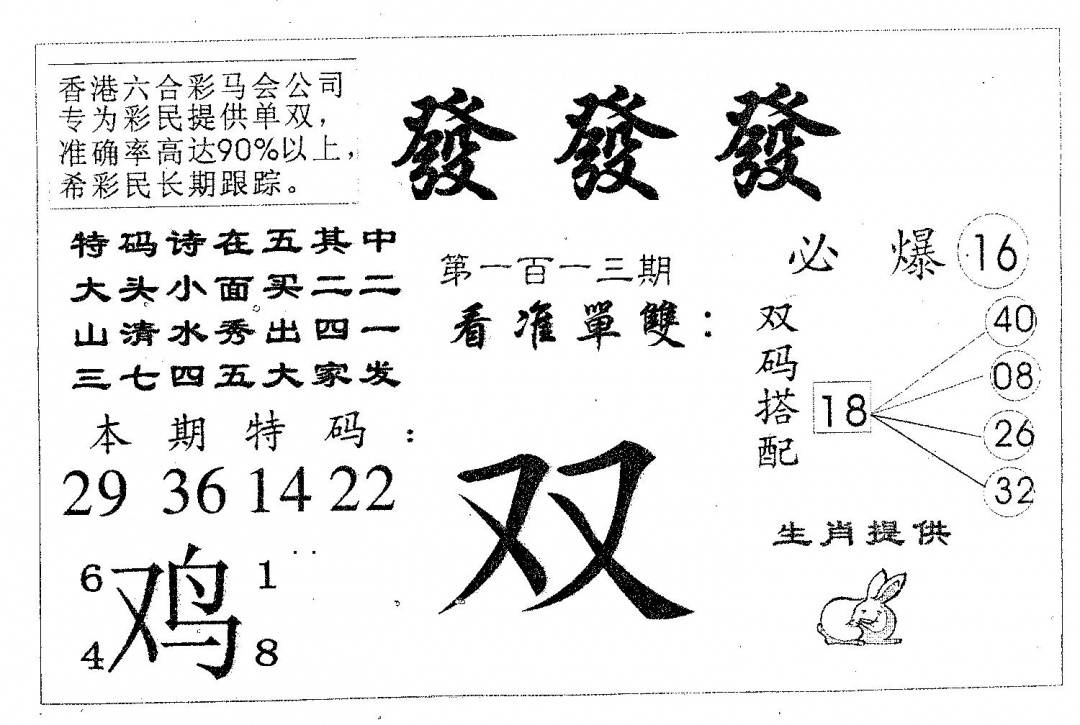 香港六合彩马会公司
专为彩民提供单双，
准确率高达90%以上，
希彩民长期跟踪。
發發發
特码诗在五其中
大头小面买二二
山清水秀出四一
三七四五大家发
第一百一三期
看准單雙：
必爆16
双码搭配
18
40
08
26
32
本期特码：
29 36 14 22
双
生肖提供
6 1
鸡
4 8